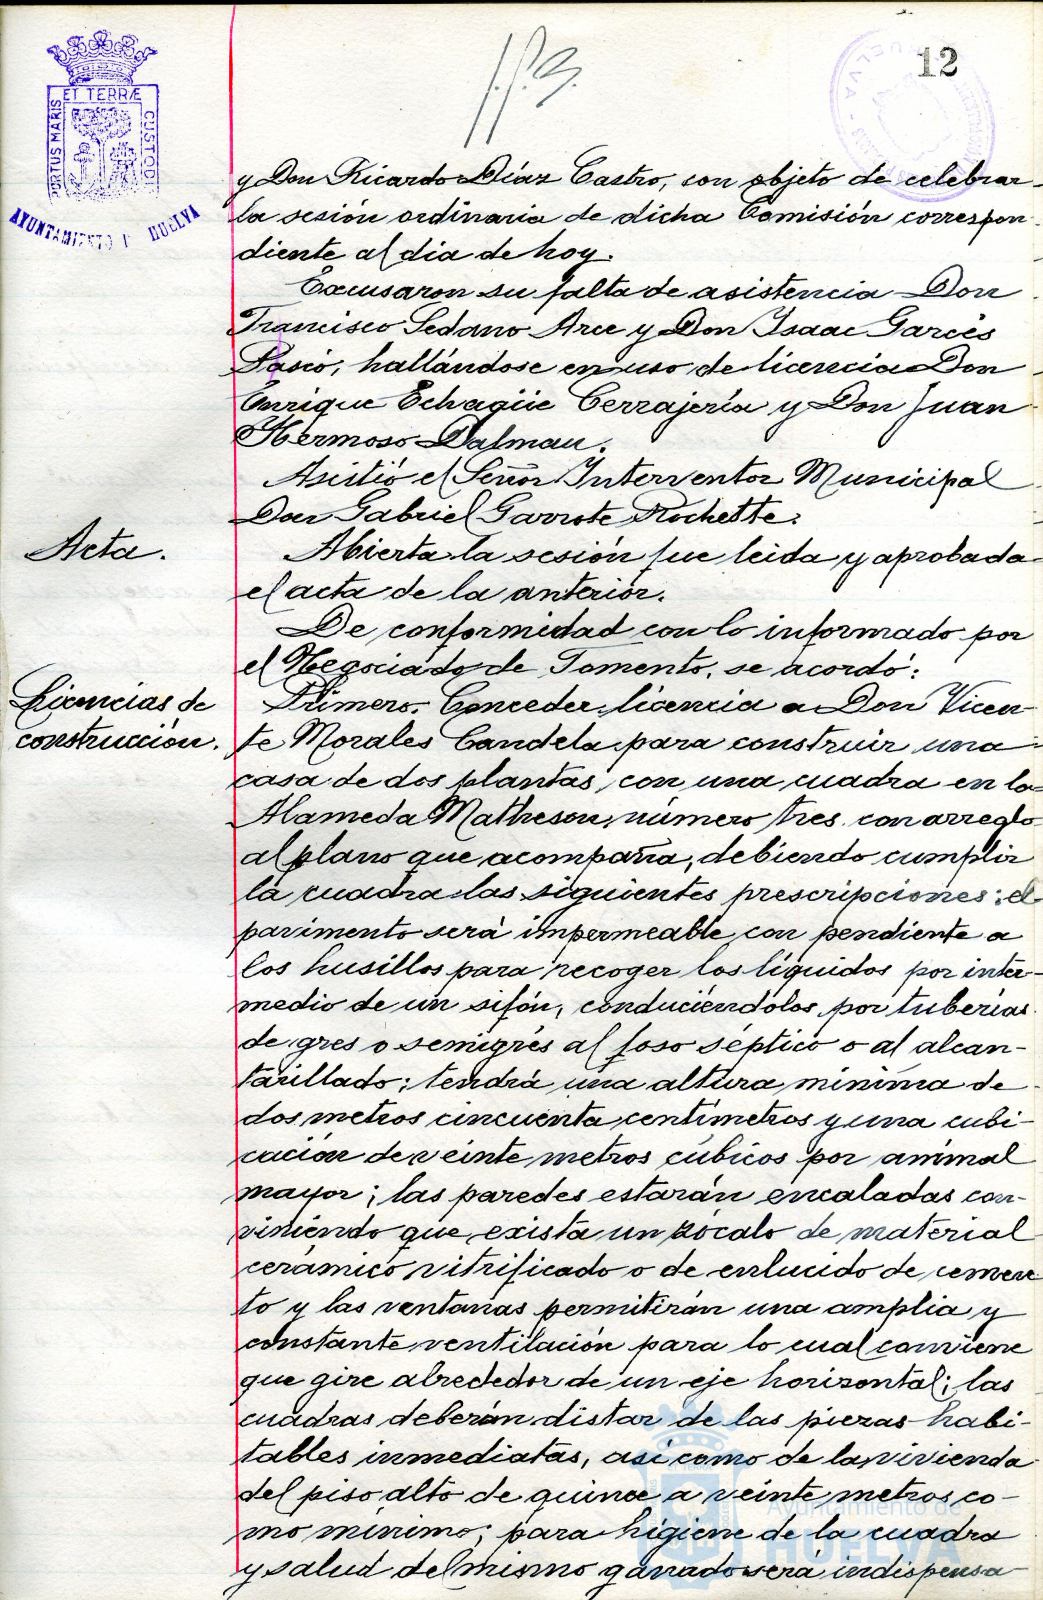 12
ET TERRÆ
PORTUS MARIS
CUSTODI
AYUNTAMIENTO HUELVA
y Don Ricardo Díaz Castro, con objeto de celebrar
la sesión ordinaria de dicha Comisión correspon-
diente al dia de hoy.
Excusaron su falta de asistencia Don
Francisco Sedano Arce y Don Isaac Garcés
Pasció, hallándose en uso de licencia Don
Enrique Echagüe Cerrajería y Don Juan
Hermoso Dalmau.
Asistió el Señor Interventor Municipal
Don Gabriel Garrote Rochette.
Acta.
Abierta la sesión fue leida y aprobada
el acta de la anterior.
De conformidad con lo informado por
el Negociado de Fomento, se acordó:
Licencias de
construcción.
Primero. Conceder licencia a Don Vicen-
te Morales Candela para construir una
casa de dos plantas, con una cuadra en la
Alameda Matheson, número tres con arreglo
al plano que acompaña, debiendo cumplir
la cuadra las siguientes prescripciones: el
pavimento será impermeable con pendiente a
los husillos para recoger los líquidos por inter-
medio de un sifón, conduciéndolos por tuberías
de gres o semigrés al foso séptico o al alcan-
tarillado; tendrá una altura mínima de
dos metros cincuenta centímetros y una cubi-
cación de veinte metros cúbicos por animal
mayor; las paredes estarán encaladas con-
viniendo que exista un zócalo de material
cerámico vitrificado o de enlucido de cemen-
to y las ventanas permitirán una amplia y
constante ventilación para lo cual conviene
que gire alrededor de un eje horizontal; las
cuadras deberán distar de las piezas habi-
tables inmediatas, así como de la vivienda
del piso alto de quince a veinte metros co-
mo mínimo; para higiene de la cuadra
y salud del mismo ganado será indispensa-
Ayuntamiento de
HUELVA